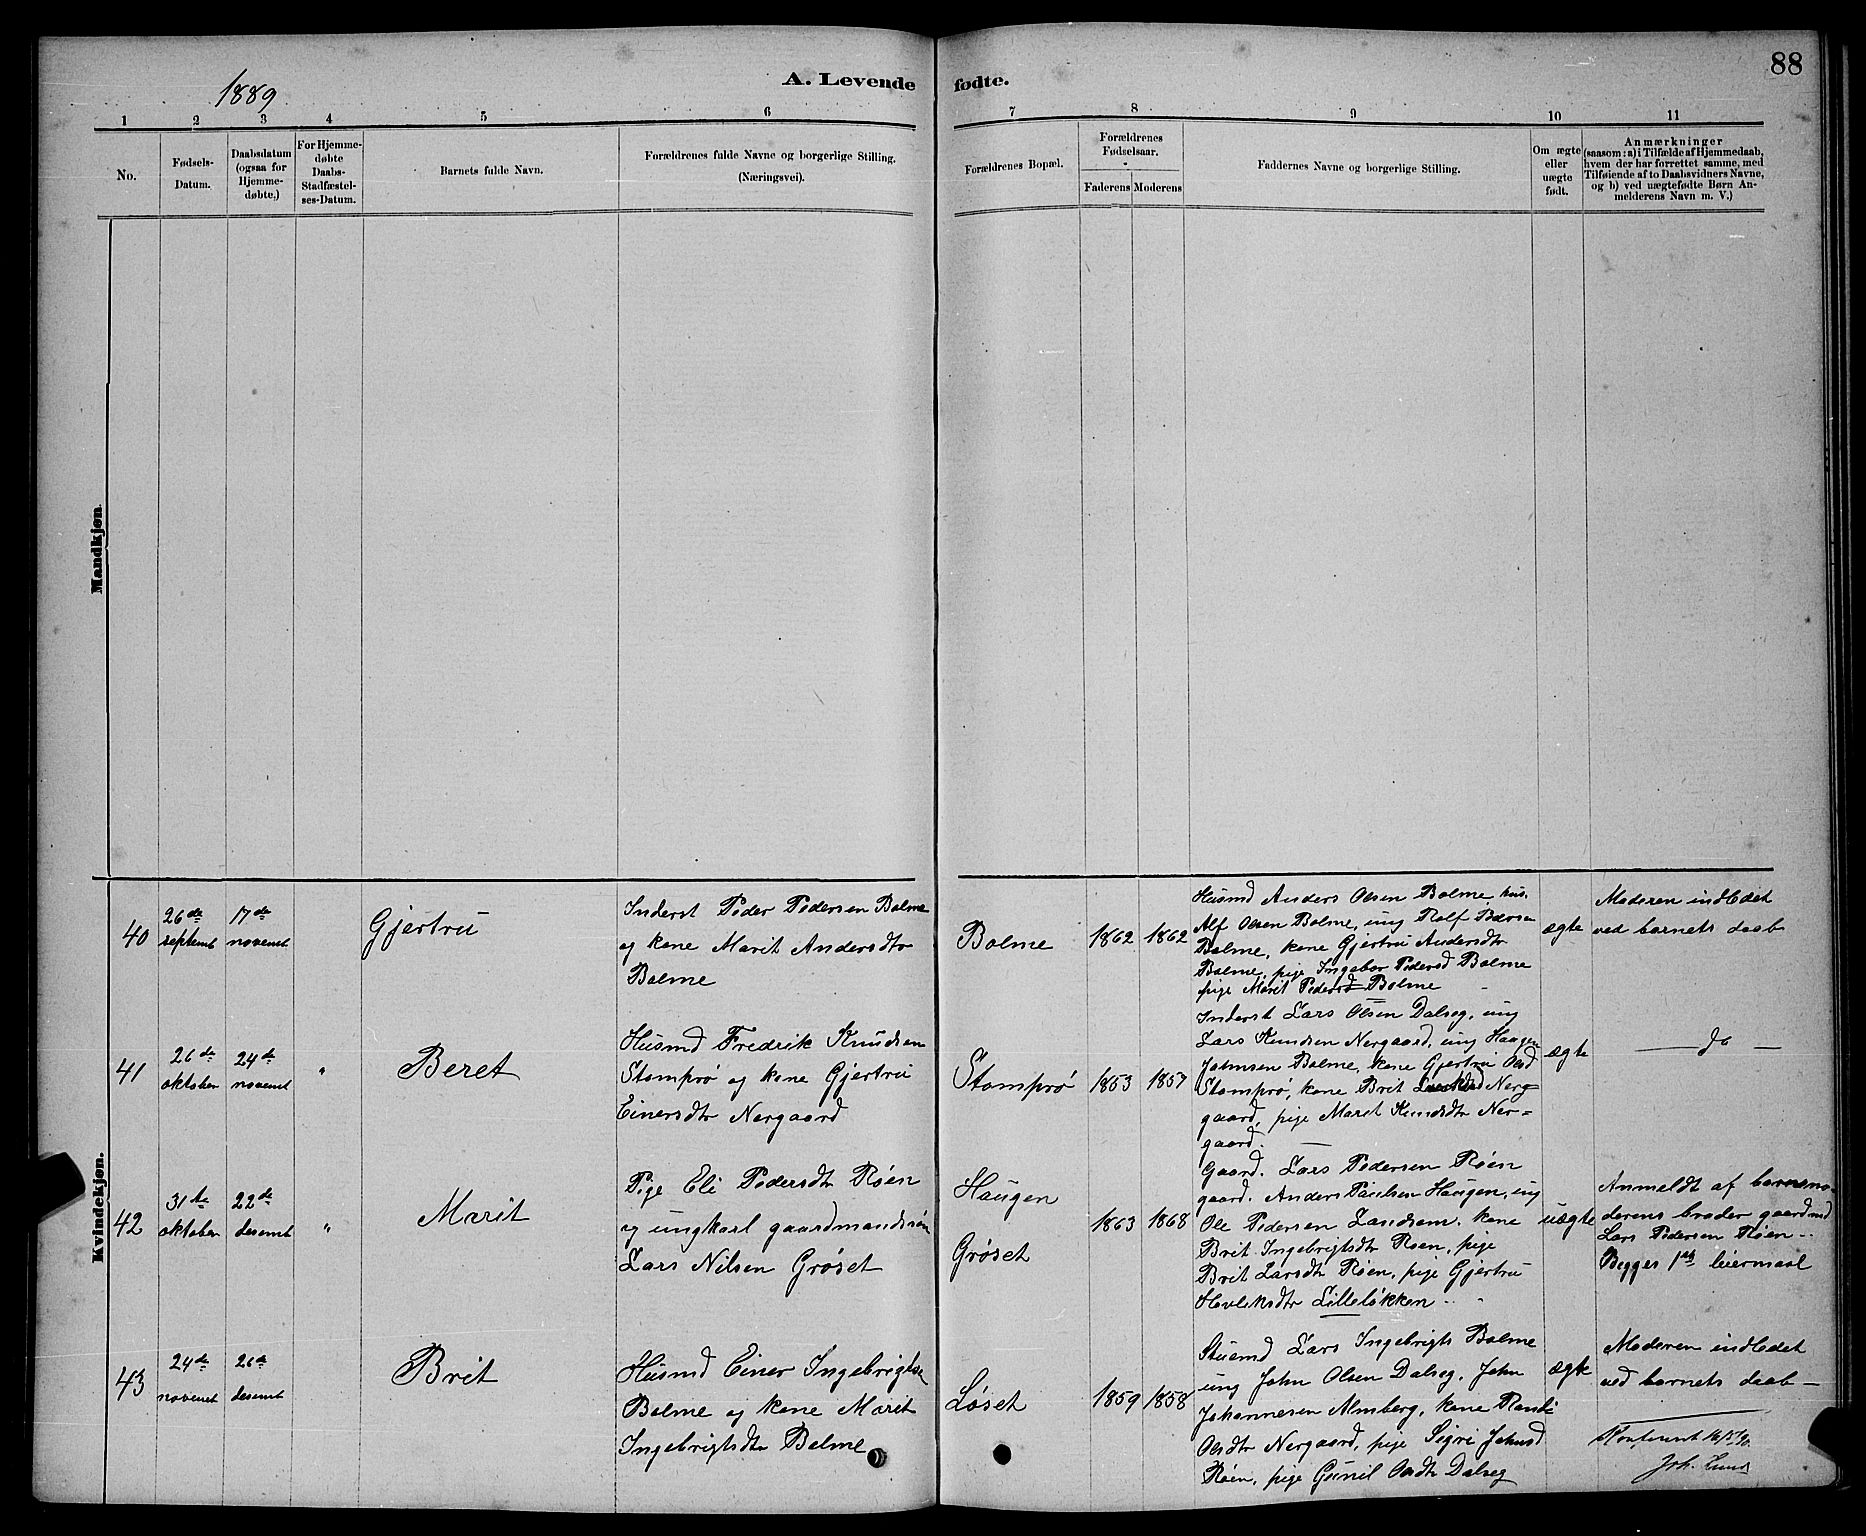 1889
A. Levende
fødte.
88
1 2 3 4 5 6 7 8 9 10 11
No.
Fødsels-
Datum.
Daabsdatum
(ogsaa for
Hjemme-
døbte,)
For Hjemme-
døbte
Daabs-
Stadfæstel-
ses-Datum.
Barnets fulde Navn.
Forældrenes fulde Navne og borgerlige Stilling.
(Næringsvei).
Forældrenes Bopæl.
Forældrenes
Fødselsaar.
Faderens Moderens
Faddernes Navne og borgerlige Stilling.
Om ægte
eller
uægte
født.
Anmærkninger
(saasom: a) i Tilfælde af Hjemmedaab,
hvem der har forrettet samme, med
Tilføiende af to Daabsvidners Navne,
og b) ved uægtefødte Børn An-
melderens Navn m. V.)
Mandkjøn.
Kvindekjøn.
40
26de
septemt
17de
novemt
Gjertru
Inderst Peder Pedersen Bolme
og kone Marit Andersdtr
Bolme
Bolme
1862
1862
Husmd Anders Olsen Bolme hus.
Alf Olsen Bolme, ung Rolf Pedersen
Bolme, kone Gjertru Andersdtr
Bolme, pige Ingebor Pedersd Bolme
pige Marit Pedersd Bolme
ægte
Moderen indledet
ved barnets daab
41
26de
oktober
24de
novemt
"
Beret
Husmd Fredrik Knudsen
Stomprø og kone Gjertru
Einersdtr Nergaard
Stomprø
1863
1857
Inderst Lars Olsen Dalseg, ung
Lars Knudsen Nergaard, ung Haagen
Johnsen Bolme, kone Gjertru Olsd
Stomprø, kone Brit Nerg-
gaard, pige Marit Knudsdtr Ner=
gaard.
ægte
— do —
42
31te
oktober
22de
desemt
"
Marit
Pige Eli Pedersdtr Røen
og ungkarl gaardmandssøn
Lars Nilsen Grøset
Haugen
Grøset
1863
1868
Gaard. Lars Pedersen Røen
gaard. Anders Paulsen Haugen, ung
Ole Pedersen Landsem. kone
Brit Ingebrigtsdtr Røen, pige
Brit Larsdtr Røen, pige Gjertru
Lilleløkken
uægte
Anmeldt af barnemo-
derens broder gaardmd
Lars Pedersen Røen
Begges 1ste leiermaal
43
24de
novemt
26de
desemt
Brit
Husmd Einer Ingebrigtsen
Bolme og kone Marit
Ingebrigtsdtr Bolme
Løset
1859
1858
Stuemd Lars Ingebrigts Bolme
ung John Olsen Dalseg, John
Johannesen Almberg, kone Randi
Olsdtr Nergaard, pige Sigri Johnsd
Røen, pige Gunil Olsdtr Dalseg
ægte
Moderen indledet
ved barnets daab —
Konfereret
Joh. Lund